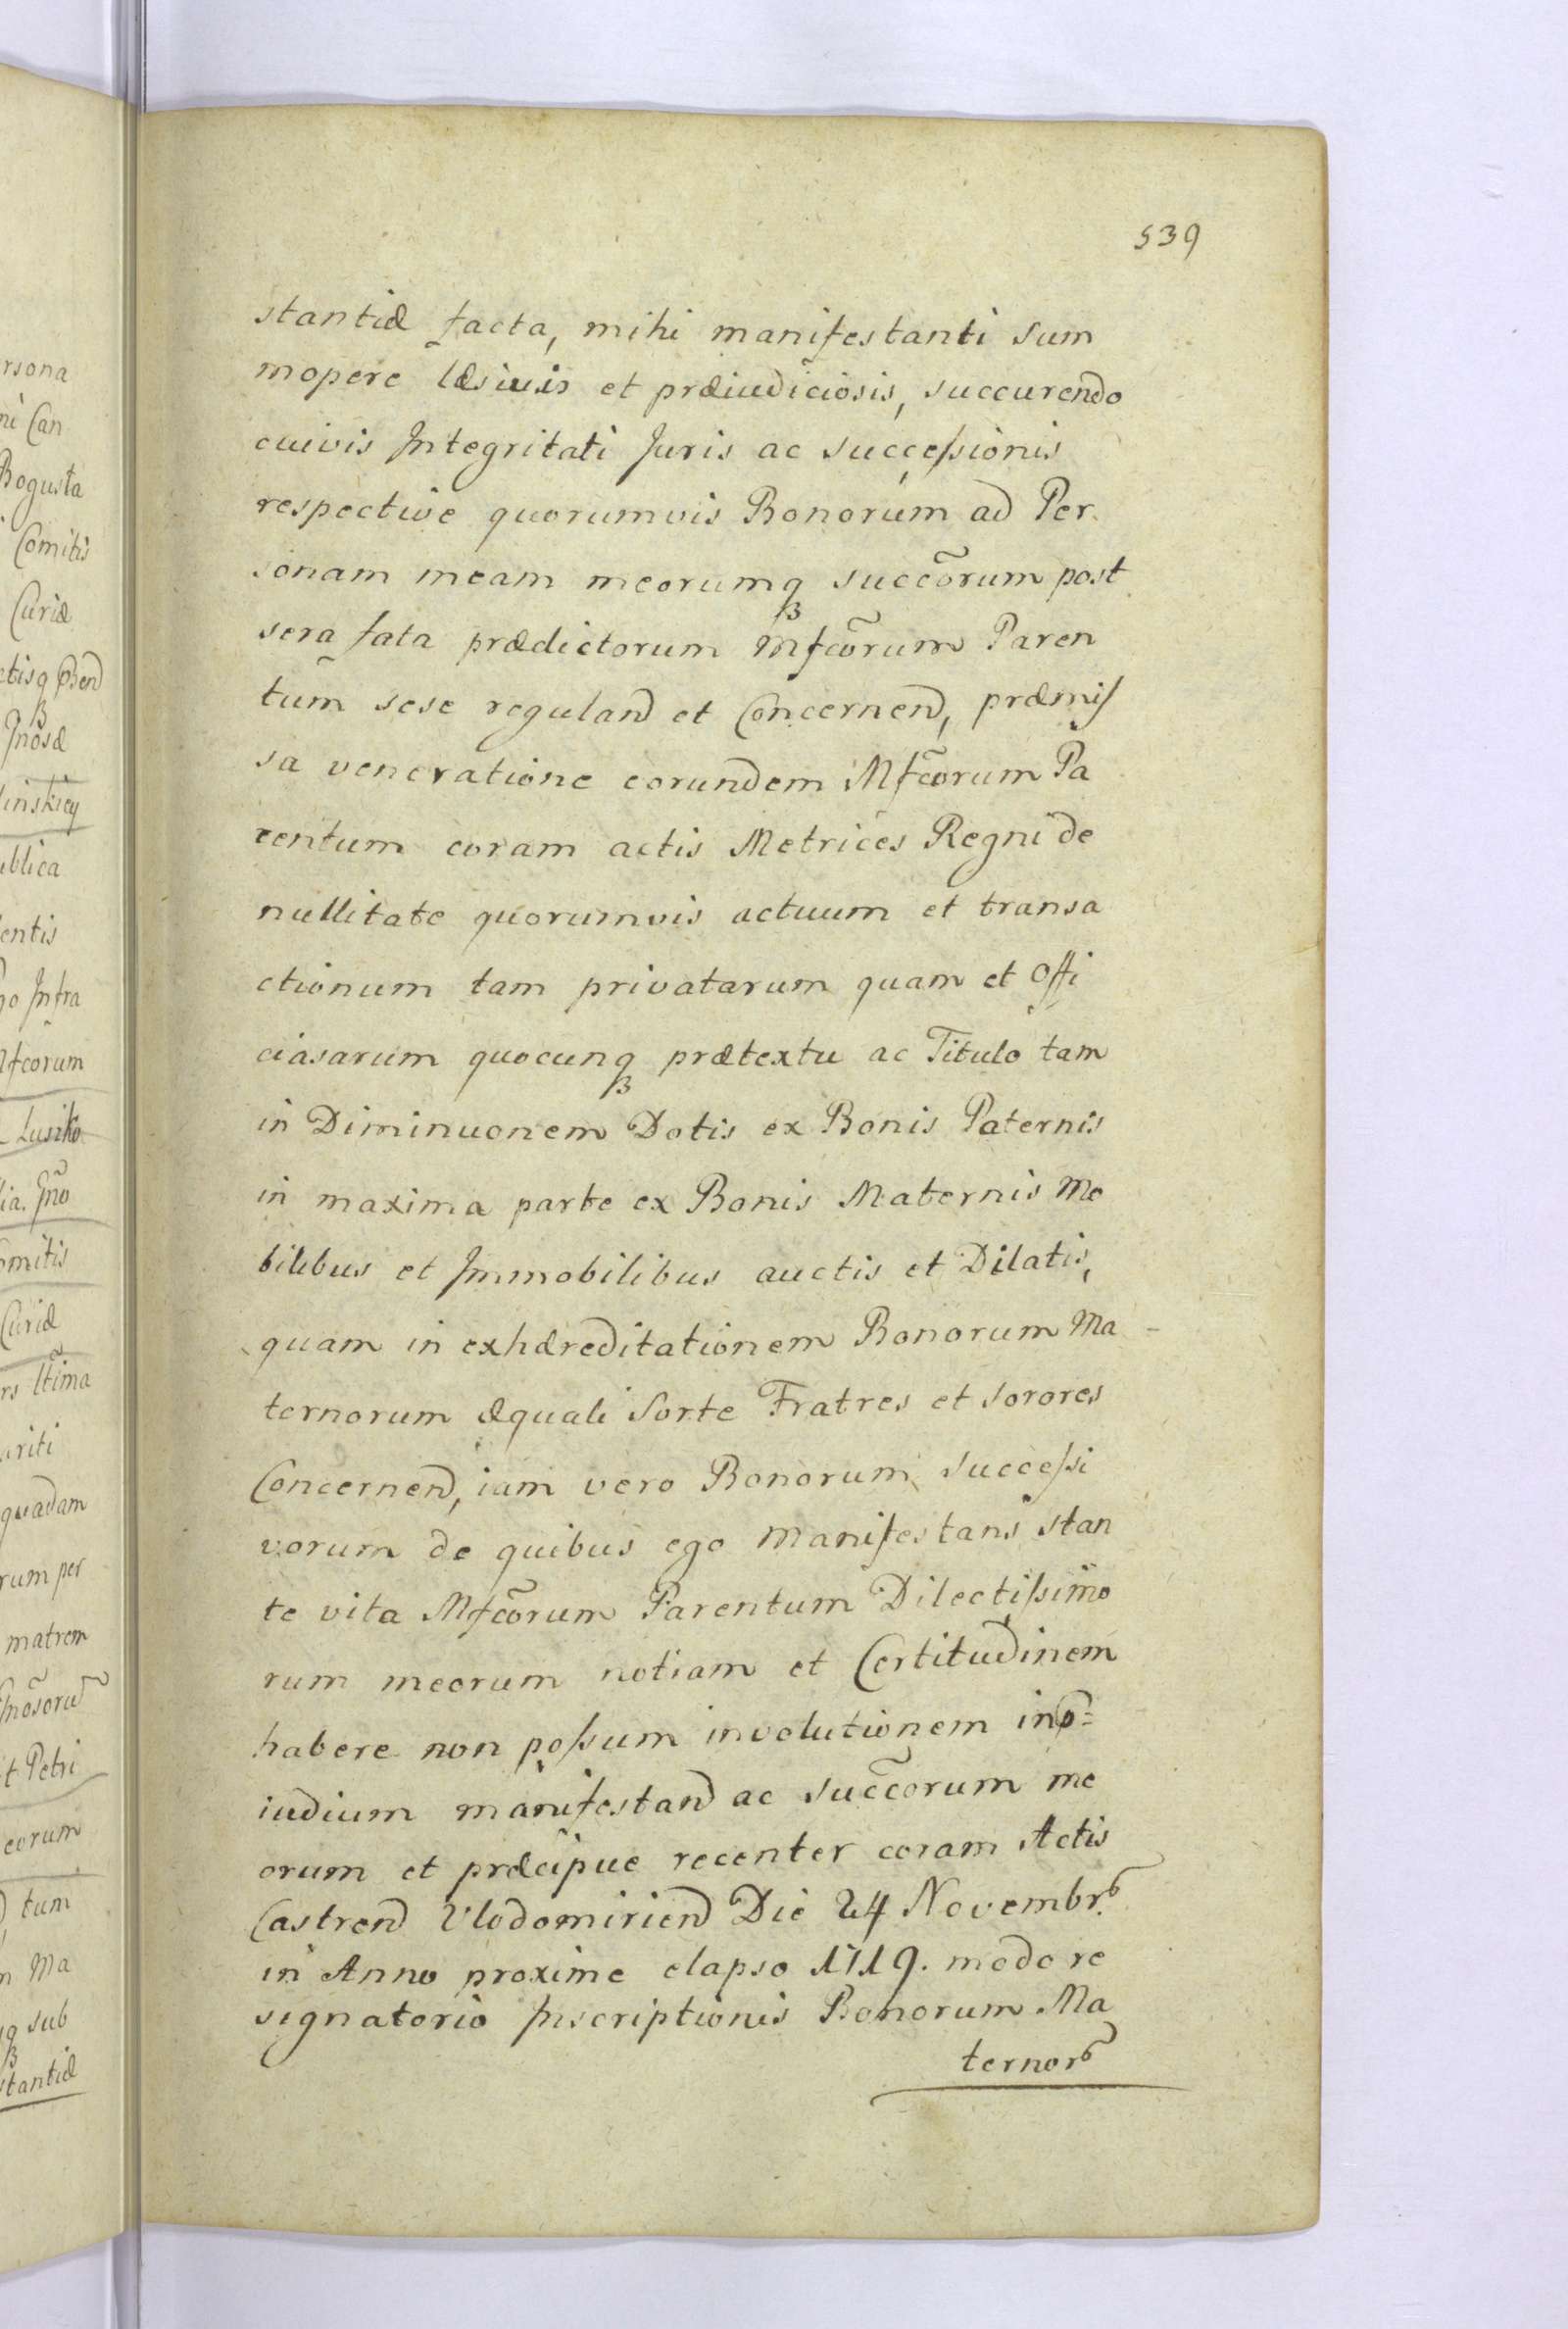 539
stantiæ facta, mihi manifestanti sum
mopere læsivis et præiudiciosis, succurendo
cuivis Integritati Juris ac successionis
respective quorumvis Bonorum ad Per
sonam meam meorumqꝫ succ̃orum post
sera fata prædictorum Mfc̃orum Paren
tum sese reguland et Concernend, præmis
sa veneratione eorundem Mfc̃orum Pa
rentum coram actis Metrices Regni de
nullitate quorumvis actuum et transa
ctionum tam privatarum quam et Offi
ciasarum quocunqꝫ prætextu ac Titulo tam
in Diminuonem Dotis ex Bonis Paternis
in maxima parte ex Bonis Maternis Mo
bilibus et Immobilibus auctis et Dilatis,
quam in exhæreditationem Bonorum Ma-
ternorum æquali Sorte Fratres et sorores
Concernend, iam vero Bonorum successi
vorum de quibus ego Manifestans stan
te vita Mfc̃orum Parentum Dilectissimo
rum meorum notiam et Certitudinem
habere non possum involutionem in
iudium manifestand ac succ̃orum me
orum et præcipue recenter coram Actis
Castrend Vlodomiriend Die 24 Novembr.
in Anno proxime elapso 1719. modo re
signatorio Inscriptionis Bonorum Ma
ternor
rsona
ni Can
Bogusta
Comitis
Curiæ
ctisqꝫ
Jnosæ
linskiey
ublica
entis
Intra
Mfcorum
Lusiko
lia. Gño
omitis
Curiæ
rs
uriti
quadam
rum per
matrem
t Petri
eorum
tum
Ma
sub
stantiæ